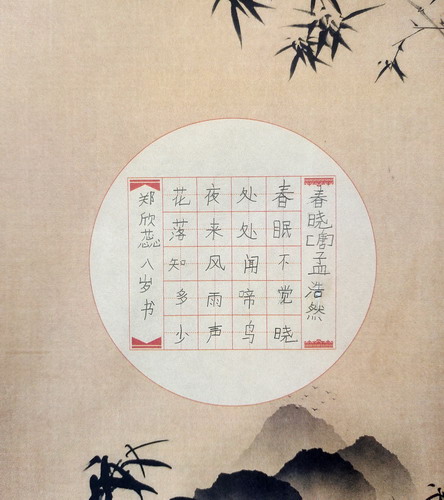 春晓[唐]孟浩然
春眠不觉晓
处处闻啼鸟
夜来风雨声
花落知多少
郑欣蕊八岁书